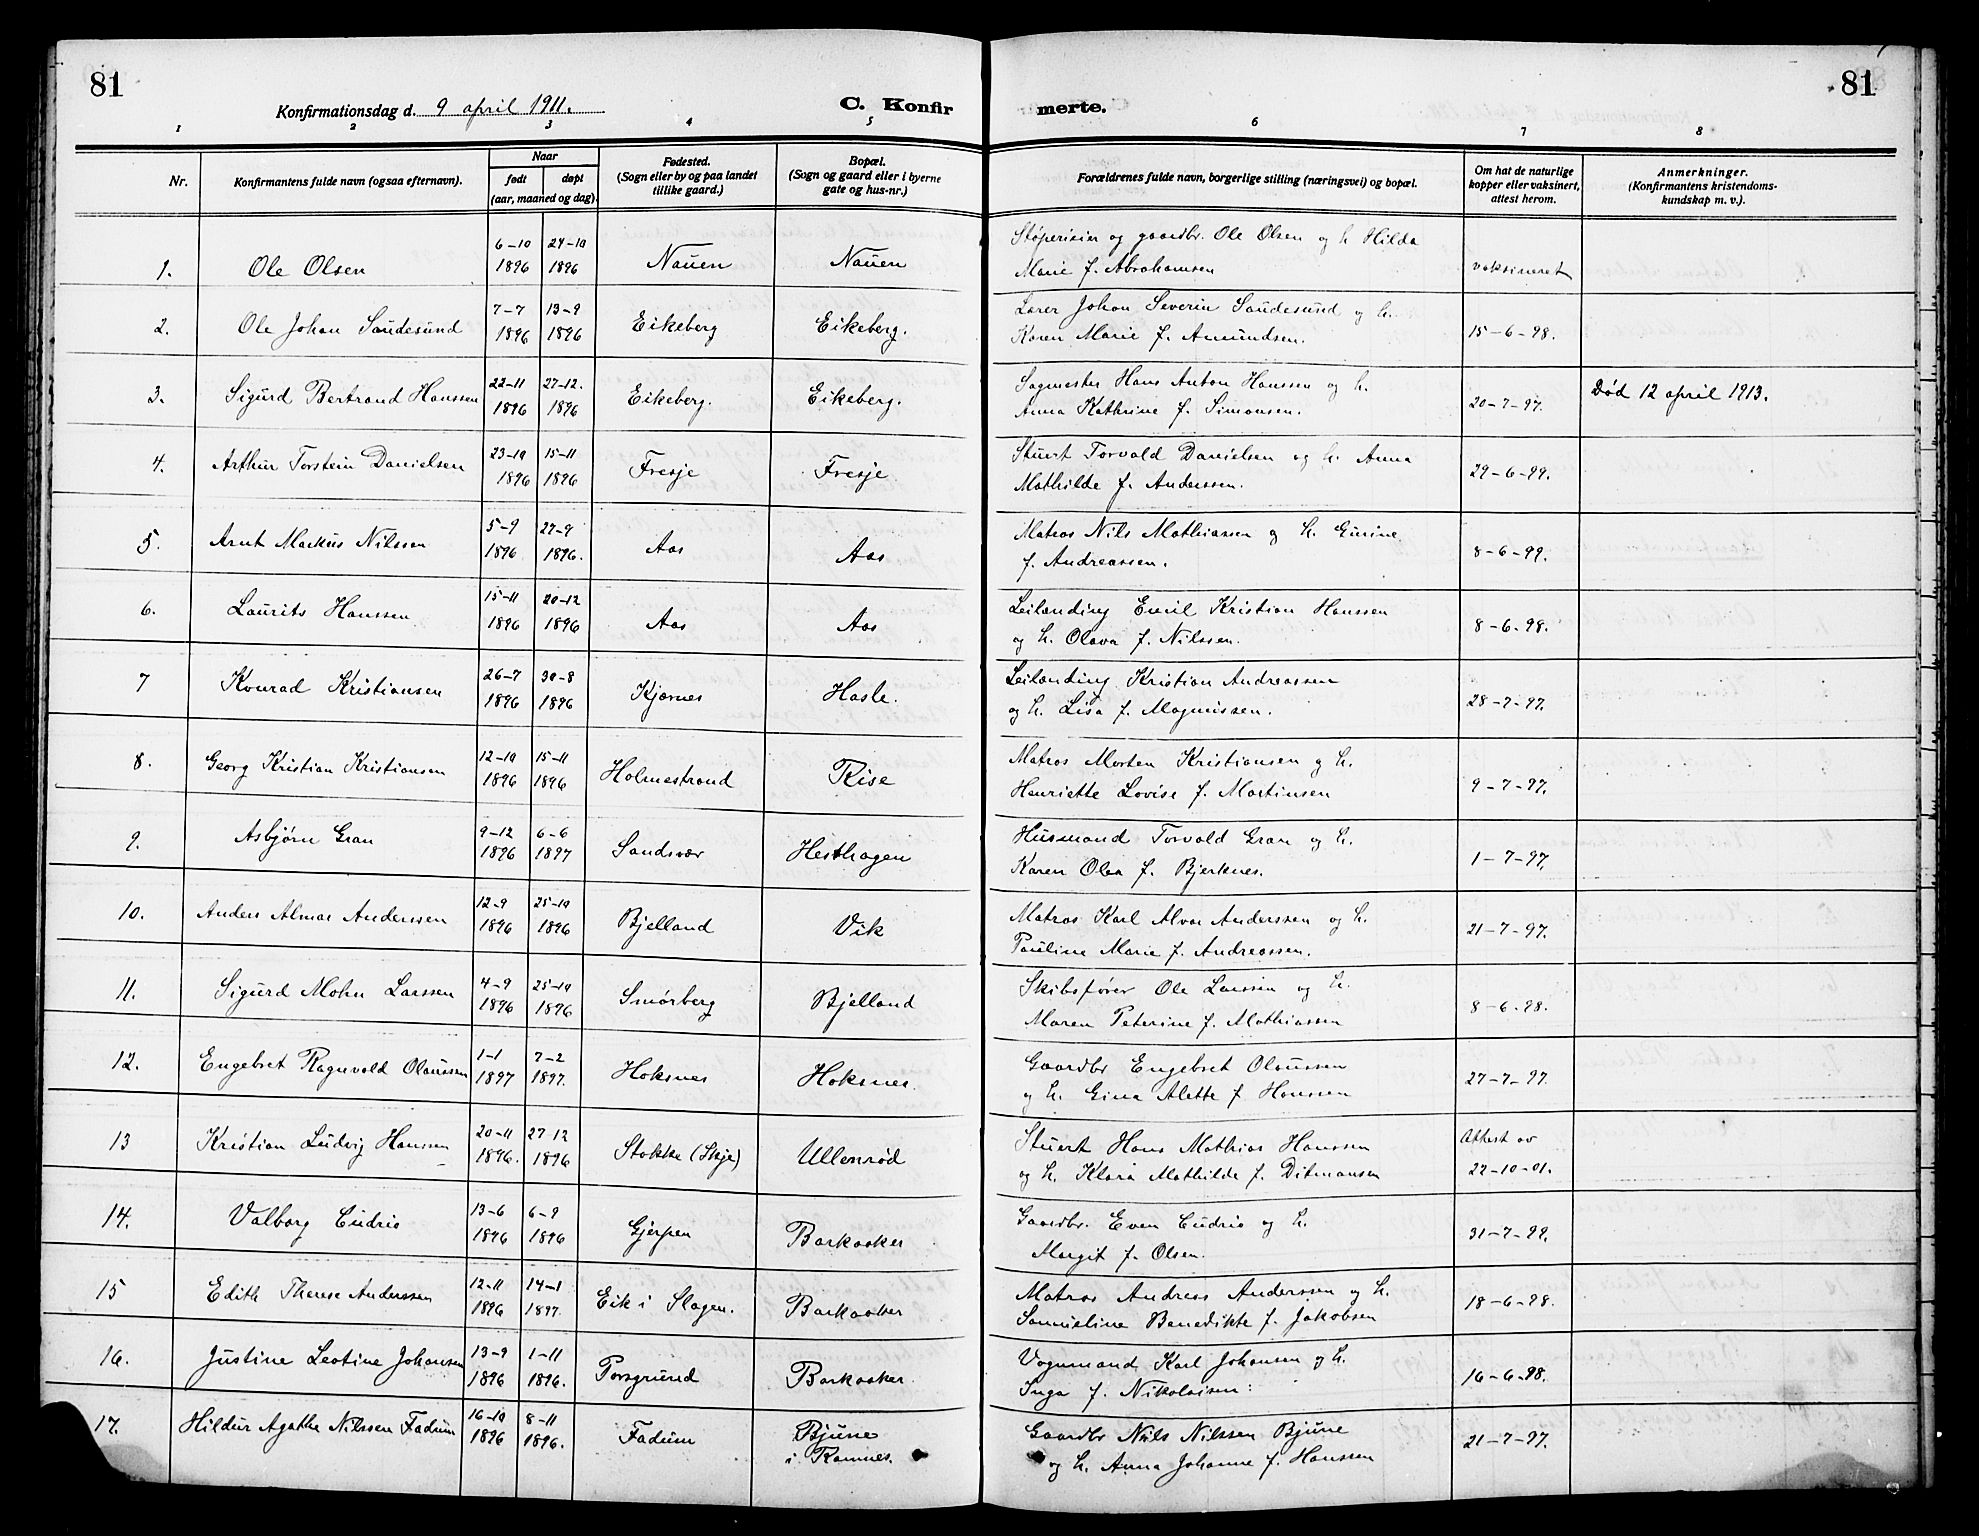 81
Konfirmationsdag d. 9 april 1911.
C. Konfirmerte.
81
1 2 3 4 5 6 7 8
Nr.
Konfirmantens fulde navn (ogsaa efternavn).
Naar
født døpt
(aar, maaned og dag).
Fødested.
(Sogn eller by og paa landet
tillike gaard.)
Bopæl.
(Sogn og gaard eller i byerne
gate og hus-nr.)
Forældrenes fulde navn, borgerlige stilling (næringsvei) og bopæl.
Om hat de naturlige
kopper eller vaksinert,
attest herom.
Anmerkninger.
(Konfirmantens kristendoms-
kundskap m. v.).
6-10 24-10 Støperieier og gaardbr. Ole Olsen og h. Hilda
1. Ole Olsen 1896 1896 Nauen Nauen Marie f. Abrahamsen vaksineret
7-7 13-9 Lærer Johan Severin Sandesund og h.
2. Ole Johan Sandesund 1896 1896 Eikeberg Eikeberg. Karen Marie f. Amundsen. 15-6-98.
22-11 27-12. Sagmester Hans Anton Hanssen og h.
3. Sigurd Bertrand Hanssen 1896 1896 Eikeberg. Eikeberg. Anna Kathrine f. Simonsen. 20-7-97. Død 12 april 1913.
23-10 15-11 Stuert Torvald Danielsen og h. Anna
4. Arthur Torstein Danielsen 1896 1896 Fresje Fresje Mathilde f. Anderssen. 29-6-99.
5-9 27-9 Matros Nils Mathiassen og h. Gurine
5. Arnt Markus Nilssen 1896 1896. Aas Aas f. Andreassen. 8-6-99.
15-11 20-12 Leilænding Emil Kristian Hanssen
6. Laurits Hanssen 1896 1896 Aas Aas og h. Olava f. Nilssen. 8-6-98.
26-7 30-8 Leilænding Kristian Andreassen
7 Konrad Kristiansen 1896 1896 Kjærnes Hasle. og h. Lisa f. Magnussen. 28-7-97.
12-10 15-11 Matros Morten Kristiansen og h.
8. Georg Kristian Kristiansen 1896 1896 Holmestrand Rise Henriette Lovise f. Martinsen 9-7-97.
9-12 6-6 Husmand Torvald Gran og h.
9. Asbjørn Gran 1896 1897 Sandsvær Hesthagen Karen Olea f. Bjerknes. 1-7-97.
12-9 25-10 Matros Karl Alvar Anderssen og h.
10. Anders Almar Anderssen 1896 1896 Bjelland Vik Pauline Marie f. Andreassen. 21-7-97.
4-9 25-10 Skibsfører Ole Larssen og h.
11. Sigurd Mohn Larssen 1896 1896 Smørberg Bjelland Maren Peterine f. Mathiassen 8-6-98.
1-1 7-2 Gaardbr Engebret Olaussen
12. Engebret Ragnvald Olaussen 1897 1897. Hoksnes Hoksnes. og h. Gina Alette f. Hanssen 27-7-97.
20-11 27-12 Stuert Hans Mathias Hanssen Attest av
13 Kristian Ludvig Hanssen 1896. 1896 Stokke (Skje) Ullenrød og h. Klara Mathilde f. Ditmansen 22-10-01.
13-6 6-9 Gaardbr. Even Cudrio og h.
14. Valborg Cudrio 1896 1896 Gjerpen Barkaaker Margit f. Olsen. 31-7-99.
12-11 14-1 Matros Andreas Anderssen og h.
15 Edith Therese Anderssen 1896 1897. Eik i Slagen. Barkaaker Samueline Benedikte f. Jakobsen 18-6-98.
13-9 1-11 Vognmand Karl Johansen og h.
16. Justine Leotine Johansen 1896 1896. Porsgrund Barkaaker. Inga f. Nikolaisen. 16-6-98.
16-10 8-11 Bjune Gaardbr Nils Nilssen Bjune
17. Hildur Agathe Nilssen Fadum 1896 1896. Fadum i Ramnes. og h. Anna Johanne f. Hanssen 21-7-97.